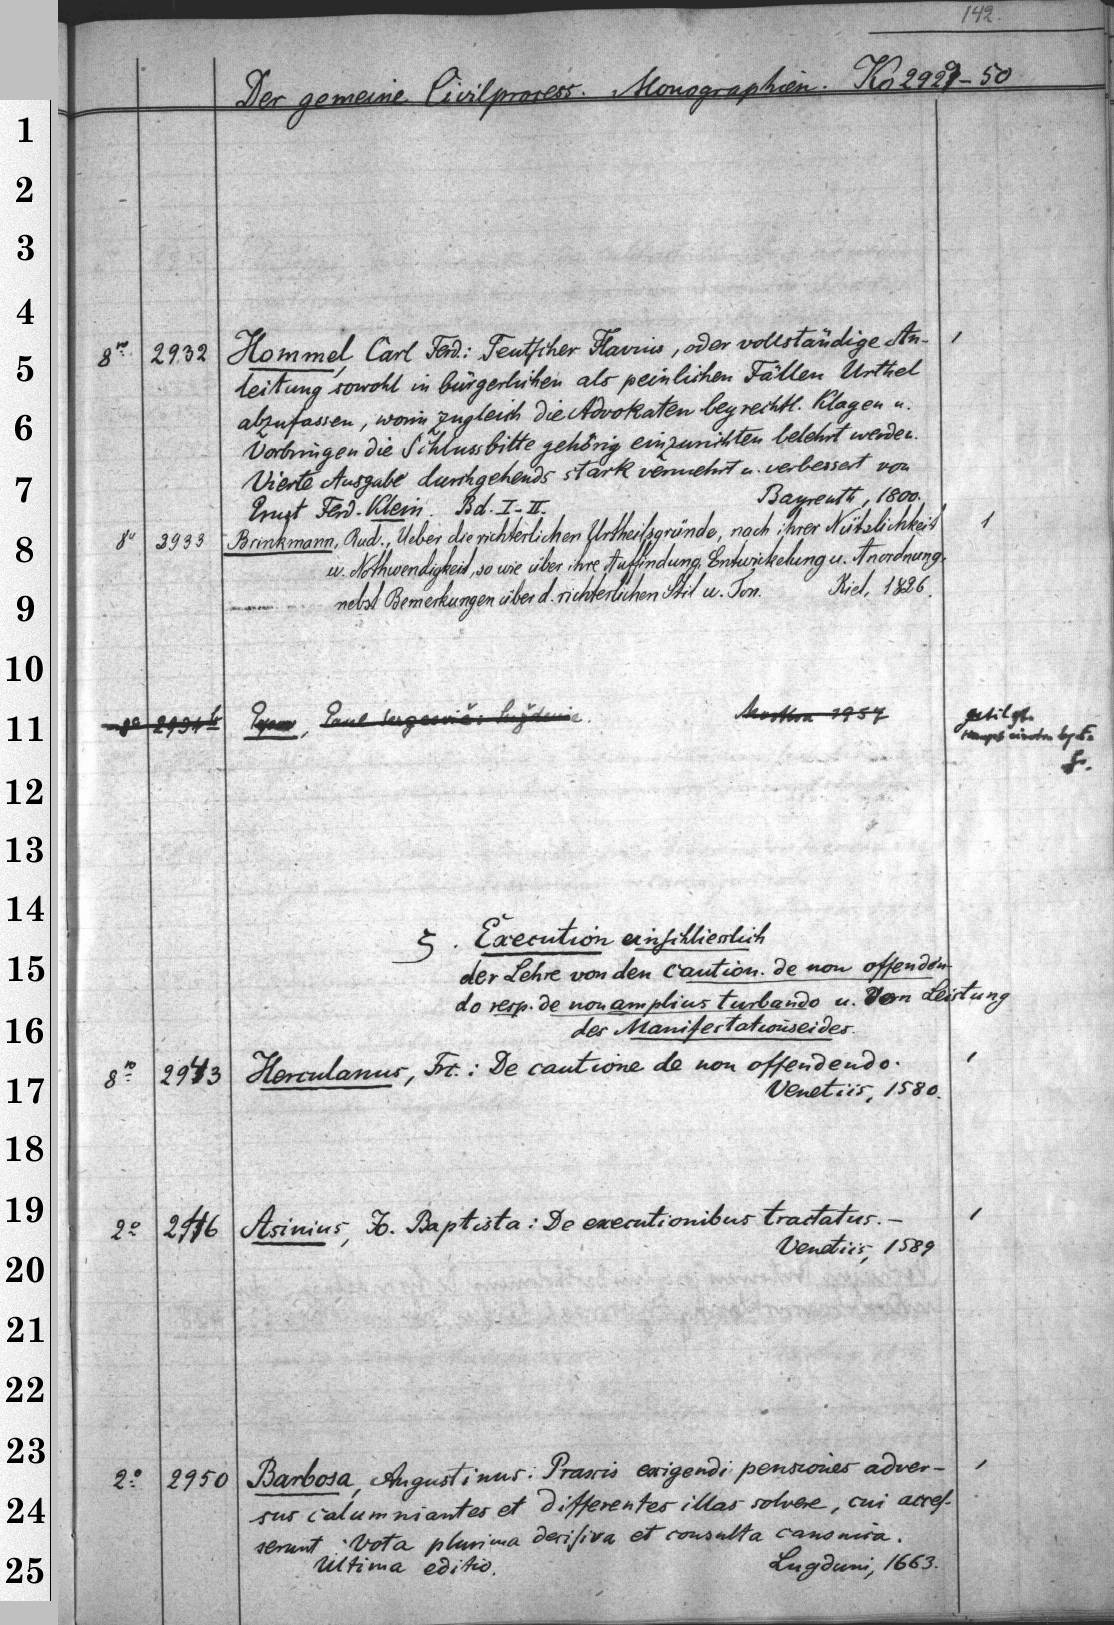 142.
Der gemeine Civilprozess. Monographien. Kn 2929-50
8vo 2932 Hommel, Carl Ferd.: Teutscher Flavius, oder vollständige An- 1
leitung sowohl in bürgerlichen als peinlichen Fällen Urthel
abzufassen, worin zugleich die Advokaten bey rechtl. Klagen u.
Vorbringen die Schlussbitte gehörig einzurichten belehrt werden.
Vierte Ausgabe durchgehends stark vermehrt u. verbessert von
Ernst Ferd. Klein. Bd. I-II. Bayreuth, 1800.
8o 2933 Brinkmann, Rud., Ueber die richterlichen Urtheilsgründe, nach ihrer Nützlichkeit 1
u. Nothwendigkeit, so wie über ihre Auffindung, Entwickelung u. Anordnung.
nebst Bemerkungen über d. richterlichen Stil u. Ton. Kiel, 1826.
8o 2934 Paul Moskva 1957 getilgt.
5. Execution einschliesslich
der Lehre von den caution. de non offenden-
do resp. de non amplius turbando u. von Leistung
des Manifestationseides.
8vo 2943 Herculanus, Frc.: De cautione de non offendendo. 1
Venetiis, 1580.
2o 2946 Asinius, Jo. Baptista: De executionibus tractatus. - 1
Venetiis, 1589
2o 2950 Barbosa, Augustinus: Praxis exigendi pensiones adver- 1
sus calumniantes et differentes illas solvere, cui acces-
serunt: Vota plurima decisiva et consulta canonica.
Ultima editio. Lugduni, 1663.
1
2
3
4
5
6
7
8
9
10
11
12
13
14
15
16
17
18
19
20
21
22
23
24
25